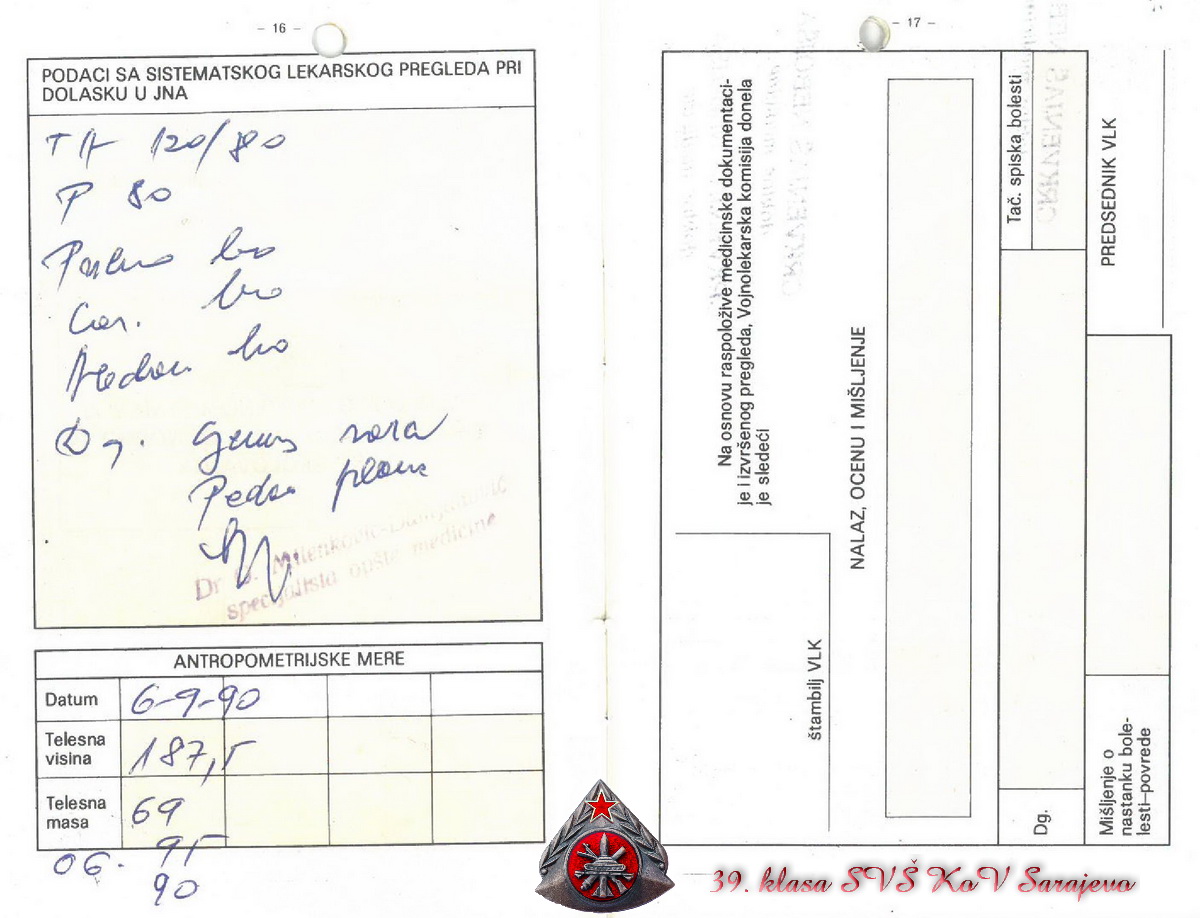 – 16 –
PODACI SA SISTEMATSKOG LEKARSKOG PREGLEDA PRI
DOLASKU U JNA
TA 120/80
P 80
Pulmo bo
Cor. bo
Abdomen bo
Dg. Genua vara
Pedes plani
Dr Milenković-
specijalista opšte medicine
ANTROPOMETRIJSKE MERE
Datum 6-9-90
Telesna
visina 187,5
Telesna
masa 69
OG. 95
90
– 17 –
Na osnovu raspoložive medicinske dokumentaci-
je i izvršenog pregleda, Vojnolekarska komisija donela
je sledeći
štambilj VLK
NALAZ, OCENU I MIŠLJENJE
Tač. spiska bolesti
Dg.
PREDSEDNIK VLK
Mišljenje o
nastanku bole-
sti–povrede
39. klasa SVŠ KoV Sarajevo